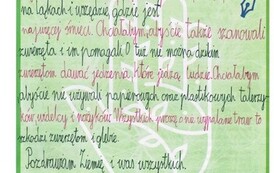 na łąkach i wszędzie, gdzie jest
najwięcej śmieci. Chciałabym, abyście także szanowali
zwierzęta i im pomagali. I też nie można dzikim
zwierzętom dawać jedzenia, które jedzą ludzie. Chciałabym
abyście nie używali papierowych oraz plastikowych talerzy-
ków, widelcy i nożyków. Wszystkich proszę o nie wypalanie traw to
szkodzi zwierzętom i glebie.
Pozdrawiam Ziemię i was wszystkich.